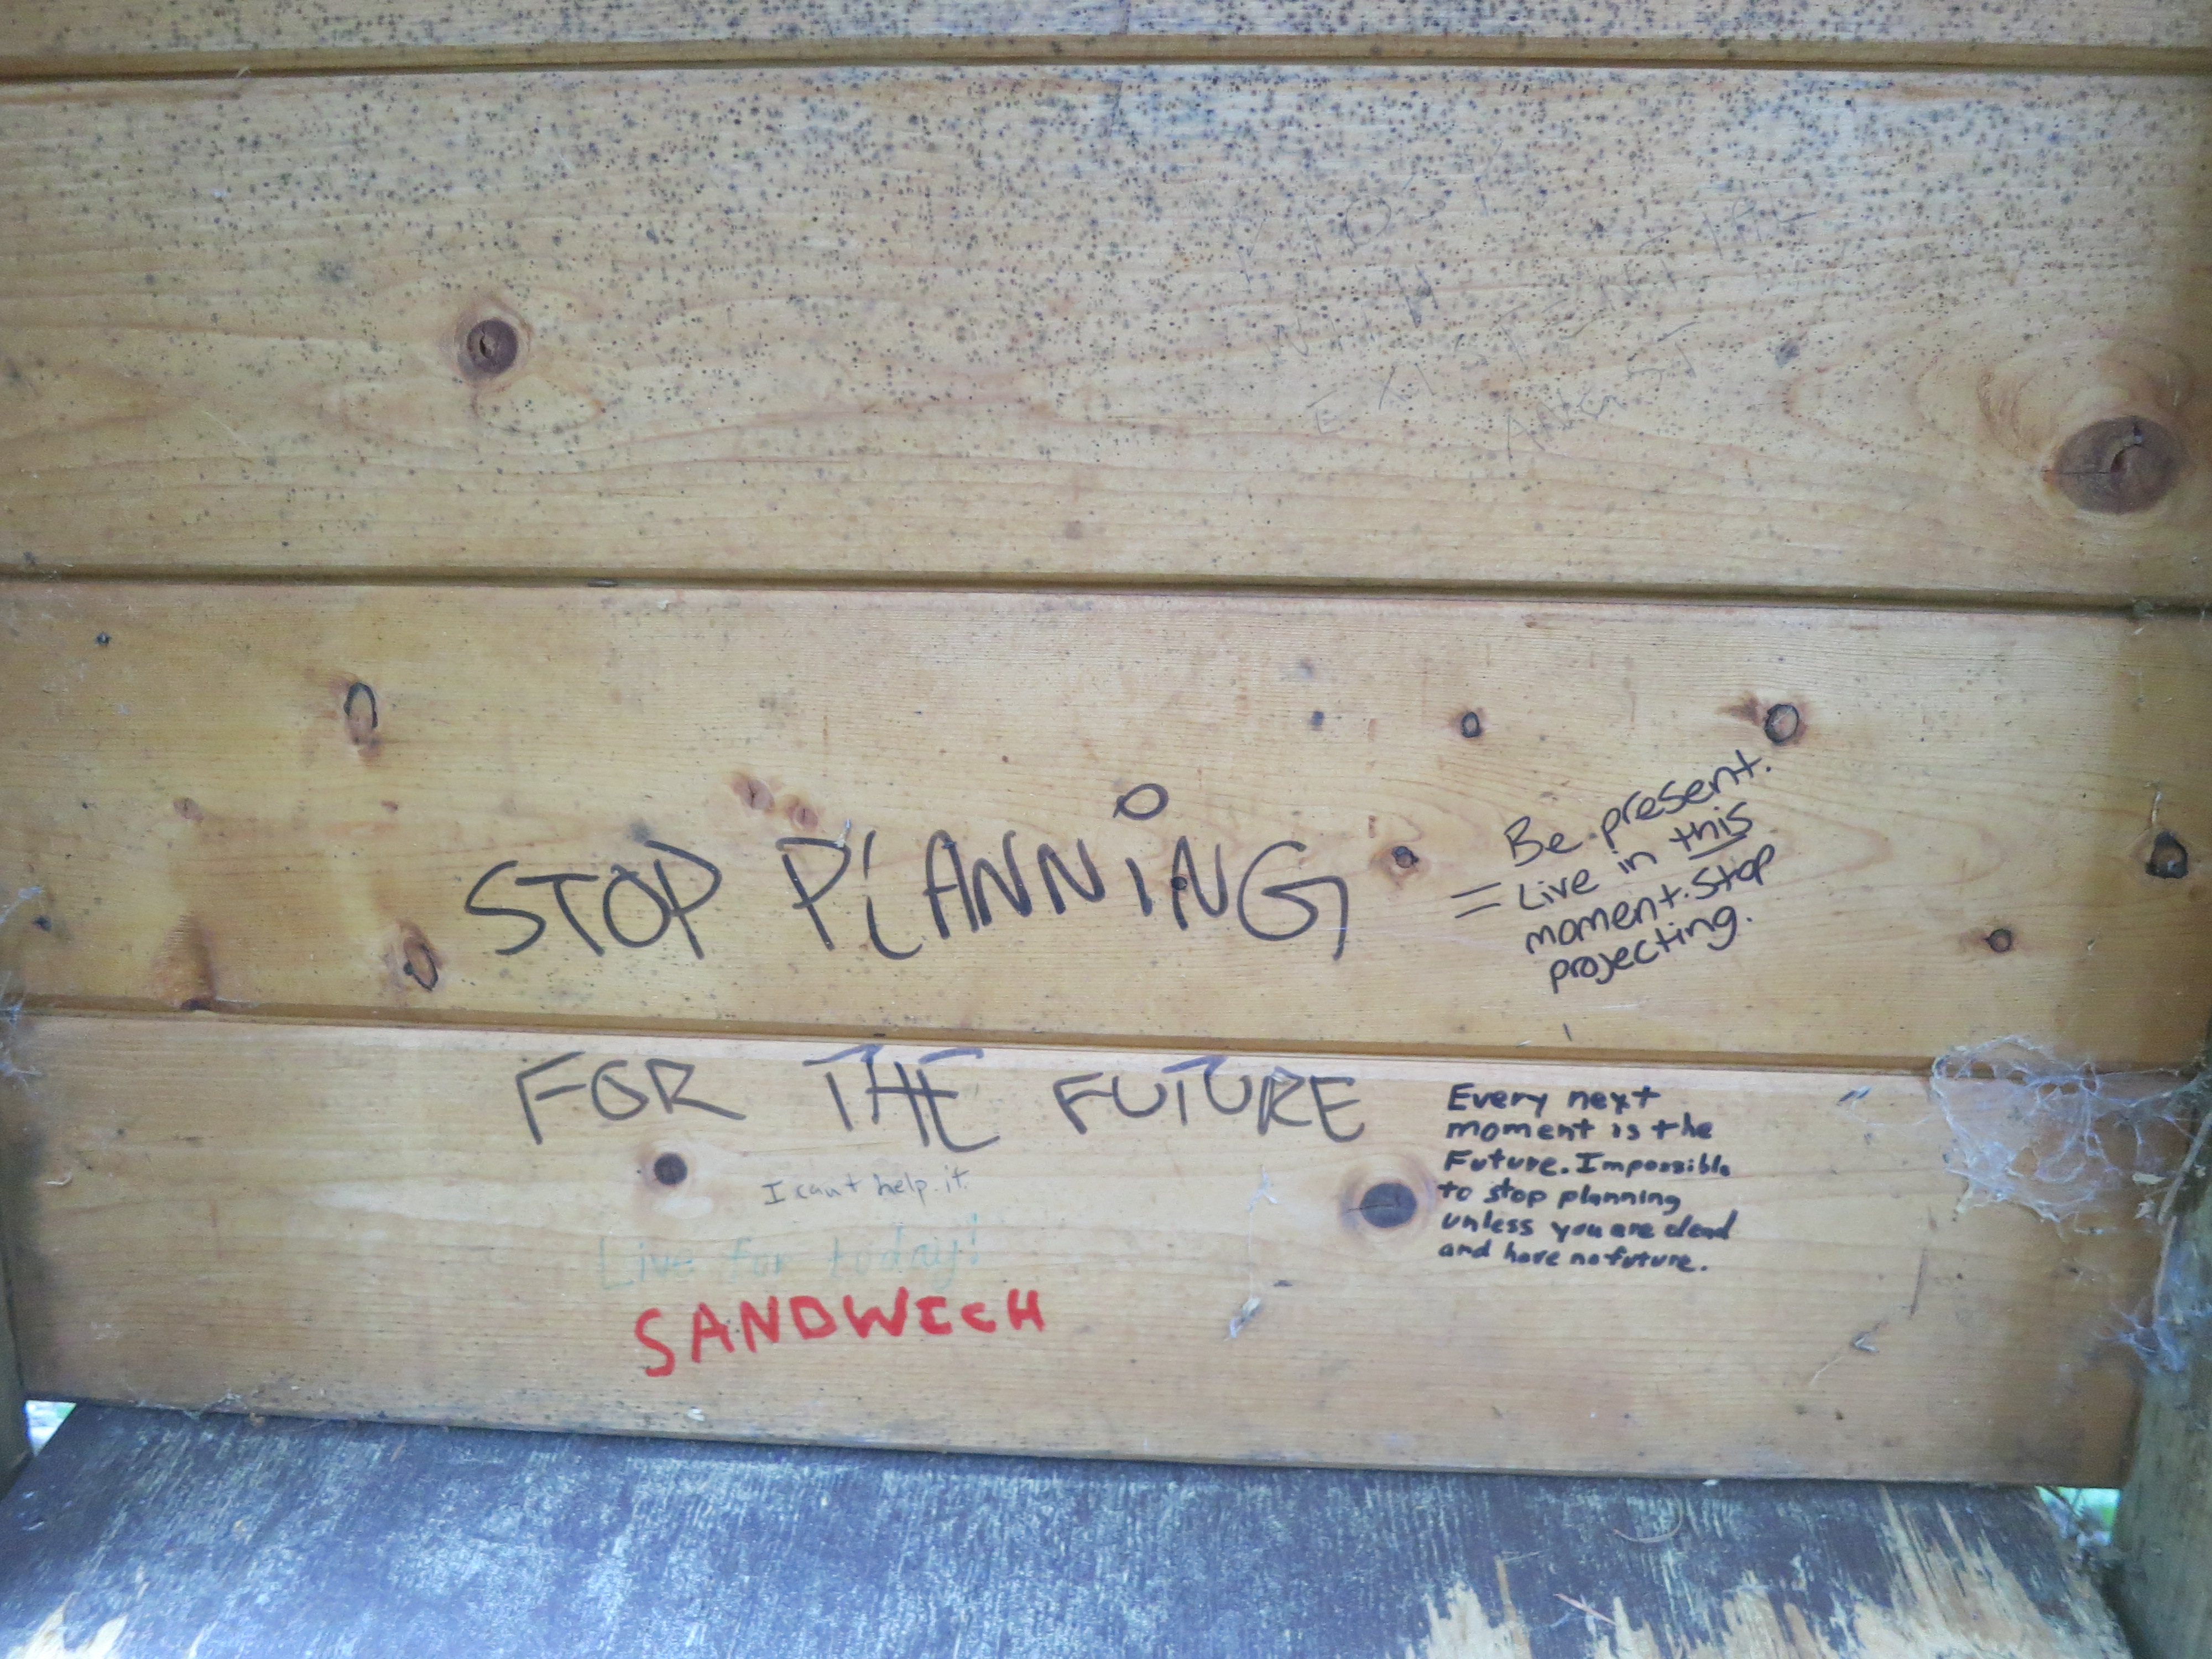 WITH
EXISTENTIAL
ANGST
STOP PLANNING
= Be present.
Live in this
moment. Stop
projecting.
FOR THE FUTURE
I can't help it.
Live for today!
SANDWICH
Every next
moment is the
Future. Impossible
to stop planning
unless you are dead
and have no future.